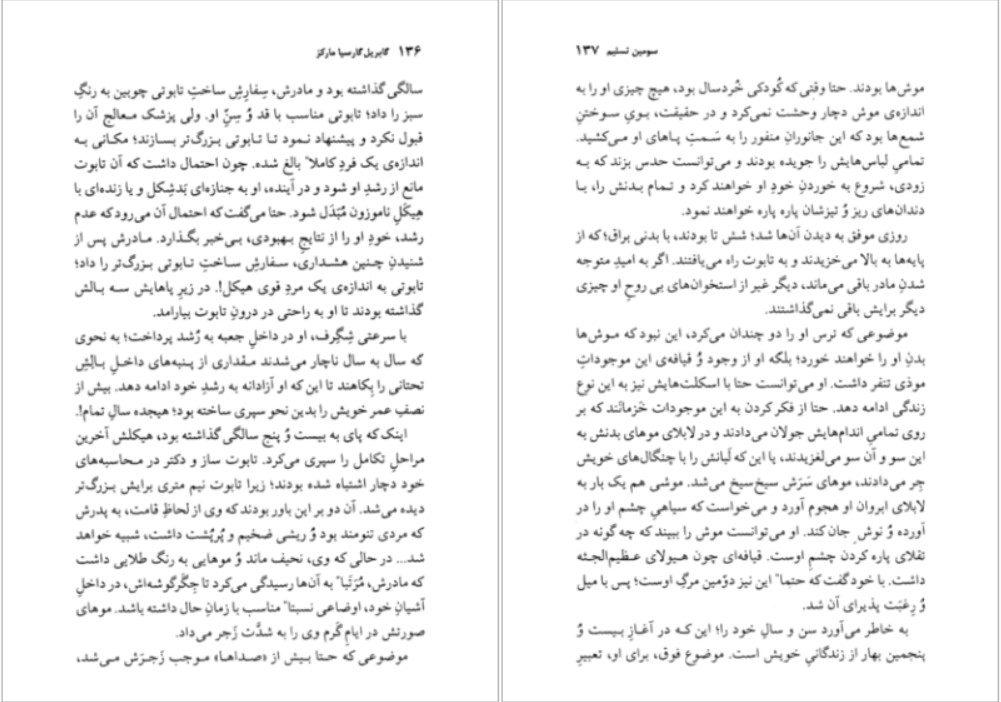 ۱۳۶ گابریل گارسیا مارکز
سالگی گذاشته بود و مادرش، سِفارِشِ ساختِ تابوتی چوبین به رنگِ
سبز را داد؛ تابوتی مناسب با قد وُ سِنِّ او. ولی پزشک معالج آن را
قبول نکرد و پیشنهاد نمود تا تابوتی بزرگ‌تر بسازند؛ مکانی به
اندازه‌ی یک فردِ کاملاً بالغ شده. چون احتمال داشت که آن تابوت
مانع از رشدِ او شود و در آینده، او به جنازه‌ای بَدشِکل و یا زنده‌ای با
هِیکَلِ ناموزون مُبَدَل شود. حتا می‌گفت که احتمال آن می‌رود که عدم
رشد، خودِ او را از نتایجِ بهبودی، بی‌خبر بگذارد. مادرش پس از
شنیدنِ چنین هشداری، سفارشِ ساختِ تابوتی بزرگ‌تر را داد؛
تابوتی به اندازه‌ی یک مردِ قوی هیکل!. در زیرِ پاهایش سه بالش
گذاشته بودند تا او به راحتی در درونِ تابوت بیارامد.
با سرعتی شِگِرف، او در داخلِ جعبه به رُشد پرداخت؛ به نحوی
که سال به سال ناچار می‌شدند مقداری از پنبه‌های داخلِ بالِشِ
تحتانی را بِکاهند تا این که او آزادانه به رشدِ خود ادامه دهد. بیش از
نصفِ عمر خویش را بدین نحو سپری ساخته بود؛ هیجده سالِ تمام!.
اینک که پای به بیست وُ پنج سالگی گذاشته بود، هیکلش آخرین
مراحلِ تکامل را سپری می‌کرد. تابوت ساز و دکتر در محاسبه‌های
خود دچار اشتباه شده بودند؛ زیرا تابوت نیم متری برایش بزرگ‌تر
دیده می‌شد. آن دو بر این باور بودند که وی از لحاظِ قامت، به پدرش
که مردی تنومند بود وُ ریشی ضخیم و پُرپُشت داشت، شبیه خواهد
شد... در حالی که وی، نحیف ماند وُ موهایی به رنگ طلایی داشت
که مادرش، مُرَتّباً به آن‌ها رسیدگی می‌کرد تا جِگَرگوشه‌اش، در داخلِ
آشیانِ خود، اوضاعی نسبتاً مناسب با زمانِ حال داشته باشد. موهای
صورتش در ایامِ گرم وی را به شدَّت زَجر می‌داد.
موضوعی که حتا بیش از «صداها» موجب زَجرَش می‌شد،
سومین تسلیم ۱۳۷
موش‌ها بودند. حتا وقتی که کُودکی خُردسال بود، هیچ چیزی او را به
اندازه‌ی موش دچار وحشت نمی‌کرد و در حقیقت، بویِ سوختنِ
شمع‌ها بود که این جانورانِ منفور را به سَمتِ پاهای او می‌کشید.
تمامیِ لباس‌هایش را جویده بودند و می‌توانست حدس بزند که به
زودی، شروع به خوردنِ خودِ او خواهند کرد و تمام بدنش را، با
دندان‌های ریز وُ تیزشان پاره پاره خواهند نمود.
روزی موفق به دیدن آن‌ها شد؛ شش تا بودند، با بدنی براق؛ که از
پایه‌ها به بالا می‌خزیدند و به تابوت راه می‌یافتند. اگر به امیدِ متوجه
شدنِ مادر باقی می‌ماند، دیگر غیر از استخوان‌های بی روحِ او چیزی
دیگر برایش باقی نمی‌گذاشتند.
موضوعی که ترس او را دو چندان می‌کرد، این نبود که موش‌ها
بدنِ او را خواهند خورد؛ بلکه او از وجود وُ قیافه‌ی این موجوداتِ
موذی تنفر داشت. او می‌توانست حتا با اسکلت‌هایش نیز به این نوع
زندگی ادامه دهد. حتا از فکر کردن به این موجودات خَزمانَند که بر
روی تمامیِ اندام‌هایش جولان می‌دادند و در لابلای موهای بدنش به
این سو و آن سو می‌لغزیدند، یا این که لَبانش را با چنگال‌های خویش
جِر می‌دادند، موهای سَرَش سیخ‌سیخ می‌شد. موشی هم یک بار به
لابلای ابروان او هجوم آورد و می‌خواست که سیاهیِ چشم او را در
آورده وُ نوشِ جان کند. او می‌توانست موش را ببیند که چه گونه در
تقلای پاره کردن چشمِ اوست. قیافه‌ای چون هیولای عظیم‌الجثه
داشت. با خود گفت که حتماً این نیز دوّمین مرگِ اوست؛ پس با میل
وُ رِغبَت پذیرای آن شد.
به خاطر می‌آورد سن و سالِ خود را؛ این که در آغازِ بیست وُ
پنجمین بهار از زندگانیِ خویش است. موضوع فوق، برای او، تعبیرِ